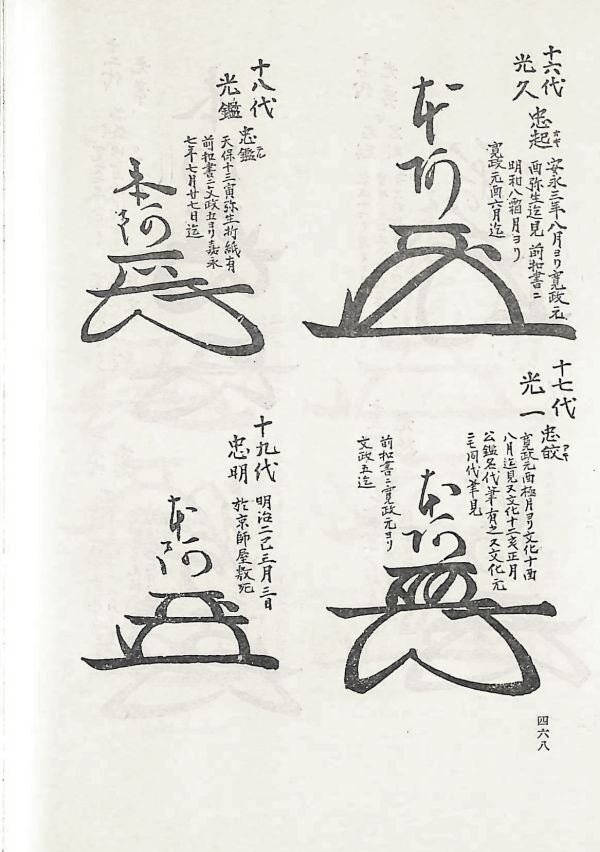 十六代
光久 忠起
安永三年八月ヨリ寛政元
酉弥生迄見 前和書ニ
明和八霜月ヨリ
寛政元酉六月迄
本阿
十七代
光一 忠皎
寛政元酉極月ヨリ文化十酉
八月迄見又文化十二亥正月
公鑑名代筆有之又文化元
ニモ同代筆見
前和書ニ寛政元ヨリ
文政五迄
本阿
十八代
光鑑 忠鑑
天保十三寅弥生折紙有
前和書ニ文政五ヨリ嘉永
七年七月廿七日迄
本阿
十九代
忠明
明治二巳三月三日
於京師屋敷死
本阿
四六八